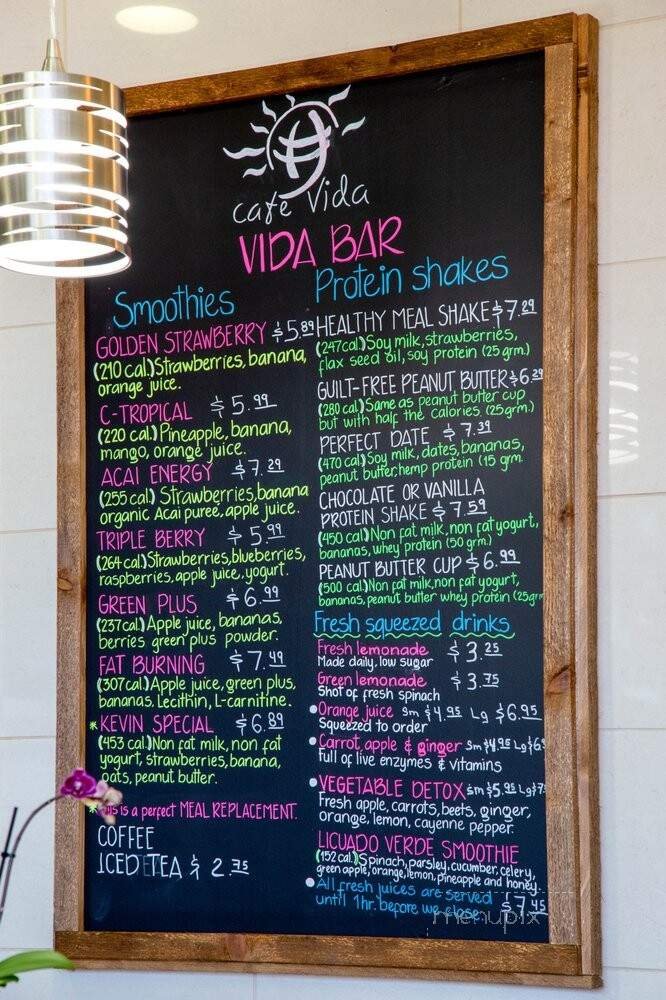 cafe Vida
VIDA BAR
Smoothies
GOLDEN STRAWBERRY $5.89
(210 cal.) Strawberries, banana,
orange juice.
C-TROPICAL $5.99
(220 cal.) Pineapple, banana,
mango, orange juice.
ACAI ENERGY $7.29
(255 cal.) Strawberries, banana
organic Acai puree, apple juice.
TRIPLE BERRY $5.99
(264 cal.) Strawberries, blueberries,
raspberries, apple juice, yogurt.
GREEN PLUS $6.99
(237 cal.) Apple juice, bananas,
berries green plus powder.
FAT BURNING $7.49
(307 cal.) Apple juice, green plus,
bananas. Lecithin, L-carnitine.
*KEVIN SPECIAL $6.89
(453 cal.) Non fat milk, non fat
yogurt, strawberries, banana,
oats, peanut butter.
*This is a perfect MEAL REPLACEMENT.
COFFEE
ICED TEA $2.75
Protein shakes
HEALTHY MEAL SHAKE $7.29
(247 cal.) Soy milk, strawberries,
flax seed oil, soy protein (25 grm.)
GUILT-FREE PEANUT BUTTER $6.39
(280 cal.) Same as peanut butter cup
but with half the calories. (25 grm.)
PERFECT DATE $7.39
(470 cal.) Soy milk, dates, bananas,
peanut butter, hemp protein (15 grm.
CHOCOLATE OR VANILLA
PROTEIN SHAKE $7.59
(450 cal.) Non fat milk, non fat yogurt,
bananas, whey protein (50 grm.)
PEANUT BUTTER CUP $6.99
(500 cal.) Non fat milk, non fat yogurt,
bananas, peanut butter whey protein (25 grm
Fresh squeezed drinks
Fresh lemonade $3.25
Made daily, low sugar
Green lemonade $3.75
Shot of fresh spinach
•Orange juice sm $4.95 Lg $6.95
Squeezed to order
•Carrot, apple & ginger sm $4.95 Lg $6.
Full of live enzymes & vitamins
•VEGETABLE DETOX sm $5.95 Lg $7
Fresh apple, carrots, beets, ginger,
orange, lemon, cayenne pepper.
LICUADO VERDE SMOOTHIE
(152 cal.) Spinach, parsley, cucumber, celery,
green apple, orange, lemon, pineapple and honey.
$7.45
•All fresh juices are served
until 1 hr. before we close.
menupix